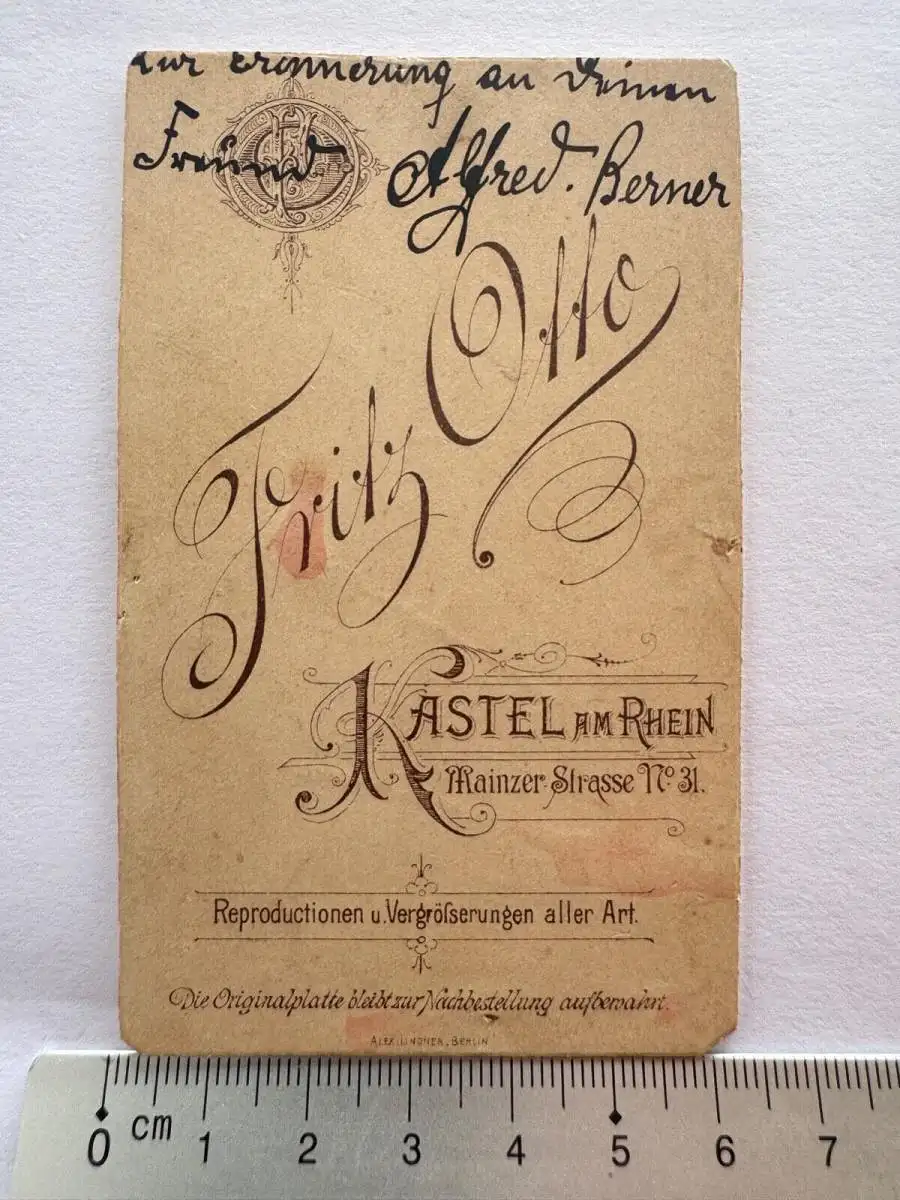 Zur Erinnerung an Deinen
Freund Alfred. Berner
Fritz Otto
KASTEL AM RHEIN
Mainzer-Strasse No 31.
Reproductionen u. Vergröſserungen aller Art.
Die Originalplatte bleibt zur Nachbestellung aufbewahrt.
ALEX. LINDNER, BERLIN
0 cm 1 2 3 4 5 6 7